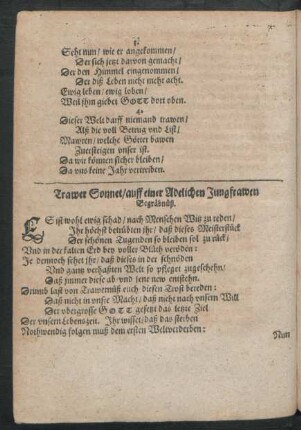 3.
Seht nun / wie er angekommen /
Der sich jetzt darvon gemacht /
Der den Himmel eingenommen /
Der diß Leben nicht mehr acht.
Ewig leben / ewig loben /
Weil jhm giebet GOTT dort oben.
4.
Dieser Welt darff niemand trawen /
Alß die voll Betrug vnd List /
Mawren / welche Götter bawen
Zuersteigen vnser ist.
Da wir können sicher bleiben /
Da vns keine Jahr vertreiben.
Trawer Sonnet / auff einer Adelichen Jungfrawen
Begräbnüß.
ES ist wohl ewig schad / nach Menschen Witz zu reden /
Ihr höchst betrübten jhr / daß dieses Meisterstück
Der schönen Tugenden so bleiben sol zu rück;
Vnd in der kalten Erd bey voller Blüth veröden:
Je dennoch sehet jhr / daß dieses in der schnöden
Vnd gantz verhaßten Welt so pfleget zugeschehn /
Daß jmmer diese ab vnd jene new entstehn.
Drumb last von Trawernüß euch diesen Trost bereden:
Daß nicht in vnsre Macht / daß nicht nach vnserm Will
Der vbergrosse GOTT gesetzt das letzte Ziel
Der vnsern Lebenszeit. Ihr wisset / daß das sterben
Nothwendig folgen muß dem ersten Weltverderben:
Nun